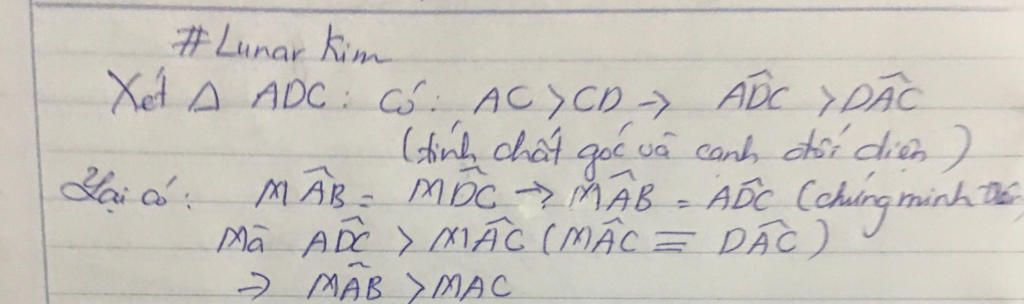 #Lunar Kim
Xét Δ ADC: Có: AC > CD → ADC^ > DAC^
(tính chất góc và cạnh đối diện)
Lại có: MAB^ = MDC^ → MAB^ = ADC^ (chứng minh
Mà ADC^ > MAC^ (MAC^ ≡ DAC^)
→ MAB^ > MAC